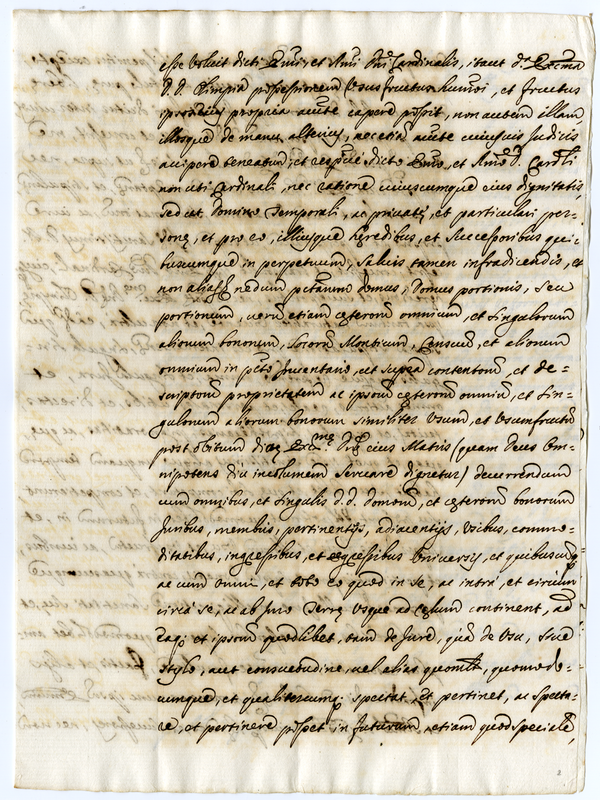 esse voluit dicti Emi, et Rmi Dni Cardinalis, itaut da. Excma
D. D. Olimpia possessionem Ususfructus humoi, et fructus
propria aucte capere possit, non autem illam,
illosque de manu alterius, nec etiam aucte cuiusvis Judicis
accipere teneatur, et respive dicto Emo, et Rmo D. Cardli
non uti Cardinali, nec ratione cuiuscumque eius dignitatis
sed ut Domino Temporali, ac privatę, et particulari per-
sonę, et pro eo, illiusque hęredibus, et successoribus qui-
buscumque in perpetuum, salvis tamen infradicendis, et
non alias nedum pctarum domus, Domus portionis, seu
portionum, verum etiam cęterorum omnium, et singulorum
aliorum bonorum, Locorum Montium, Censuum, et aliorum
omnium in pcto Inventario, ut supra contentorum, et de=
scriptorum proprietatem ac ipsorum cęterorum omnium, et sin=
gulorum aliorum bonorum similiter usum, et usumfructum
post obitum dictę Excmę Dnę eius Matris (quam Deus Om-
nipotens diu incolumem servare dignetur) decurrendum
cum omnibus, et singulis d.d. domorum, et cęterorum bonorum
Juribus, membris, pertinentijs, adiacentijs, usibus, commo=
ditatibus, ingressibus, et egressibus universis, et quibuscumq
ac cum omni, et toto eo quod in se, ac intrà, et circum
circa se, ac ab imo Terrę usque ad cęlum continent, ad
eaq; et ipsorum quodlibet, tam de Jure, quàm de usu, sive
stylo, aut consuetudine, vel alias quomlt, quomodo=
cumque, et qualitercumq; spectat, et pertinet, ac specta=
re, et pertinere posset in futurum, etiam quod speciale,